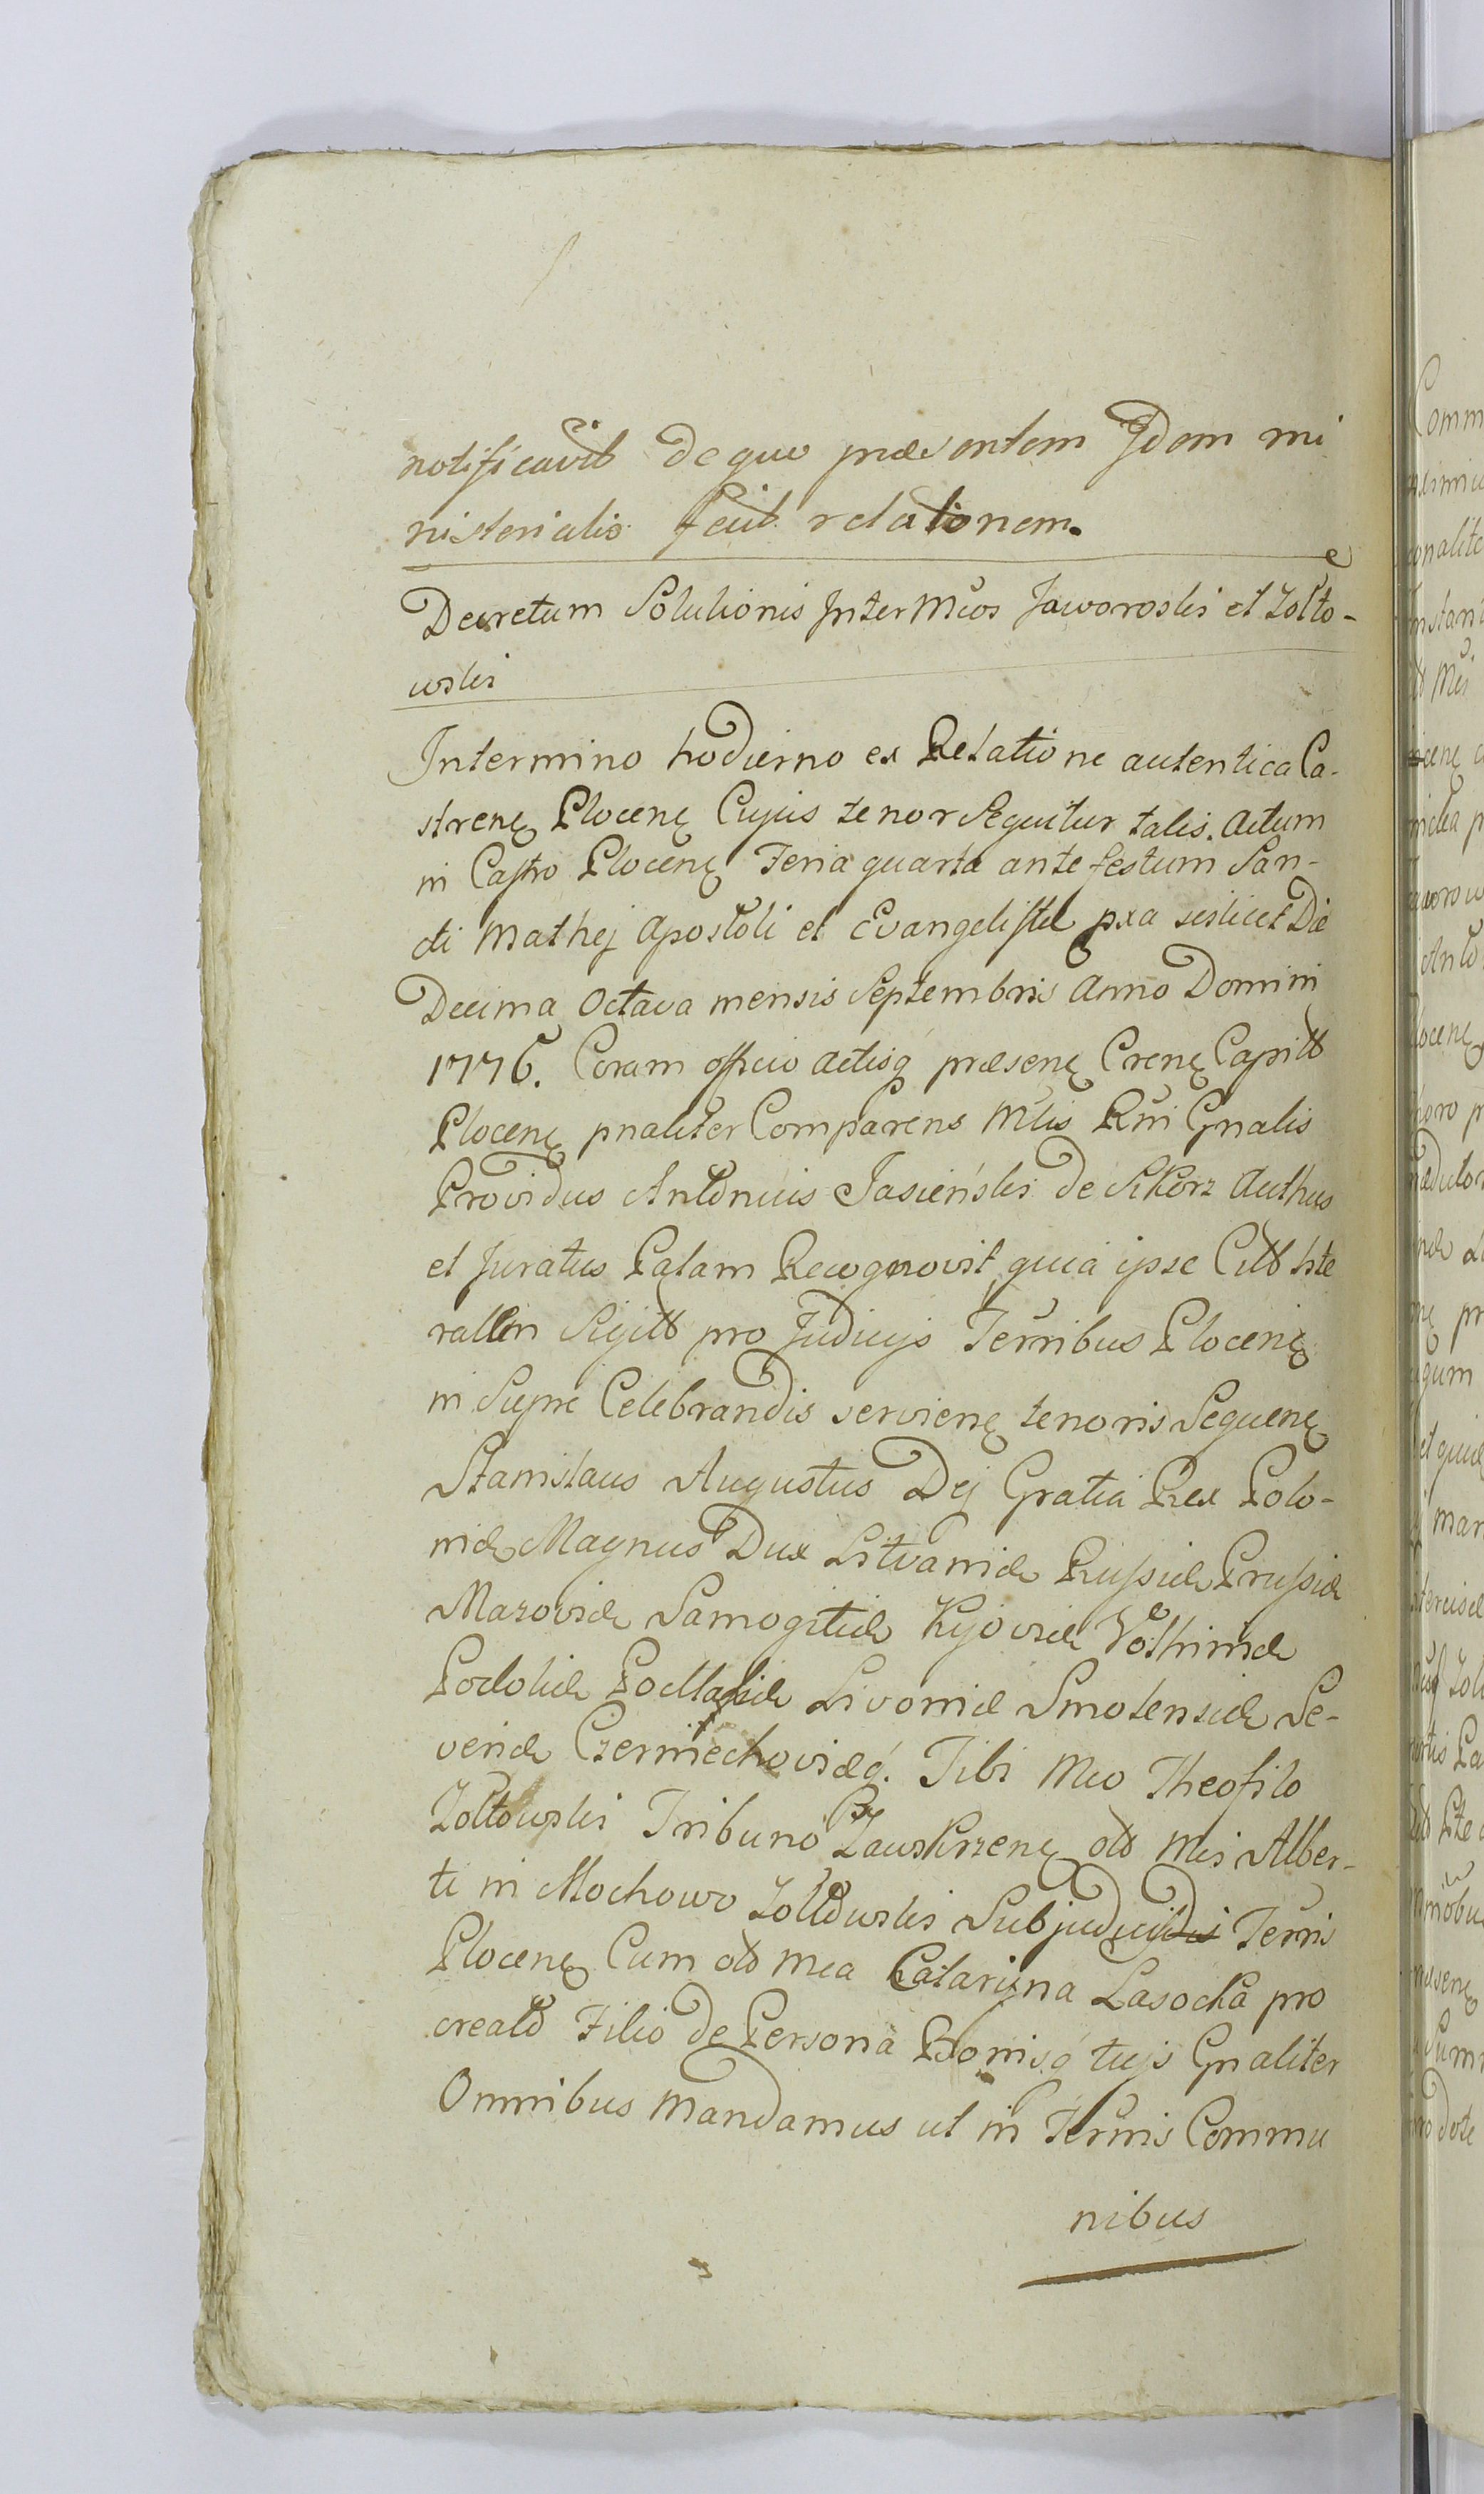 notificavit de quo præsentem Idem mi
nisterialis fecit relationem.
Decretum Solutionis Inter Mcos Jaworoski et Zołto-
wski
Intermino hodierno ex Relatione autentica Ca-
strenę Plocenę Cujus tenor Sequitur talis. Actum
in Castro Plocenę Feria quarta ante festum San-
cti Mathej Apostoli et Evangelistæ pxa scilicet Die
Decima Octava mensis Septembris Anno Domini
1776. Coram officio Actisq præsenę Crenę Capitt
Plocenę pnaliter Comparens Mtlis Rni Gnalis
Providus Antonius Jasieński de Sikorz Authus
et Juratus Palam Recognovit quia ipse Citt litte
rallen Sigitt pro Judicijs Terribus Plocenę
in Siepnc Celebrandis servienę tenoris Sequenę
Stanislaus Augustus Dej Gratia Rex Polo-
niæ Magnus Dux Litvaniæ Russiæ Prussiæ
Mazoviæ Samogitiæ Kijoviæ Volhiniæ
Podoliæ Podlassiæ Livoniæ Smolensiæ Se-
veriæ Czerniechoviæq. Tibi Mco Theofilo
Zołtowski Tribuno Zawskrzenę olo Mci Alber-
ti in Mochowo Zołtowski Subjudicis Terris
Plocenę Cum olo Mca Catarijna Lasocka pro
creato Filio de Persona Bonisq tujs Gnaliter
Omnibus Mandamus ut in Terris Commu
nibus